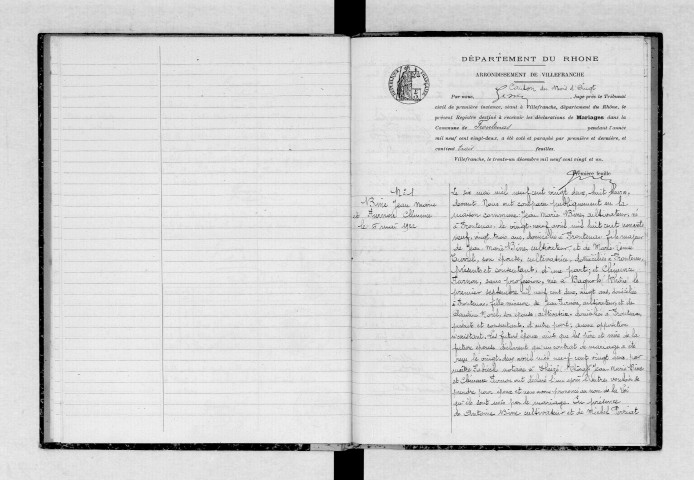 DÉPARTEMENT DU RHONE
ARRONDISSEMENT DE VILLEFRANCHE
Canton du Bois d'Oingt
Par nous, juge près le Tribunal
civil de première instance, séant à Villefranche, département du Rhône, le
présent Registre destiné à recevoir les déclarations de Mariages dans la
Commune de Frontenas pendant l'année
mil neuf cent vingt-deux, a été coté et paraphé par première et dernière, et
contient feuilles.
Villefranche, le trente-un décembre mil neuf cent vingt et un.
Première feuille
N° 1
Biné Jean Marie
et Clémence
le 6 mai 1922
Le six mai mil neuf cent vingt deux, huit heures,
devant Nous ont comparu publiquement en la
maison commune Jean Marie Biné, cultivateur, né
à Frontenas, le vingt-neuf avril mil huit cent
neuf, vingt trois ans, domicilié à Frontenas, fils majeur
de Jean Marie Biné, cultivateur et de Marie
son épouse, cultivatrice, domiciliés à Frontenas,
présents et consentant, d'une part; et Clémence
sans profession, née à Bagnols Rhône le
premier septembre mil neuf cent deux, vingt ans, domiciliée
à Frontenas, fille mineure de cultivateur, et de
Claudine son épouse cultivatrice, domiciliés à Frontenas,
présents et consentants, d'autre part; aucune opposition
n'existant. Les futurs époux ainsi que les père et mère de la
future épouse déclarent qu'un contrat de mariage a été
reçu le vingt-deux avril mil neuf cent vingt deux, par
maître notaire à Theizé. Jean Marie Biné
et Clémence ont déclaré l'un après l'autre vouloir se
prendre pour époux et nous avons prononcé au nom de la loi
qu'ils sont unis par le mariage. En présence
de Antoine Biné cultivateur et de Michel